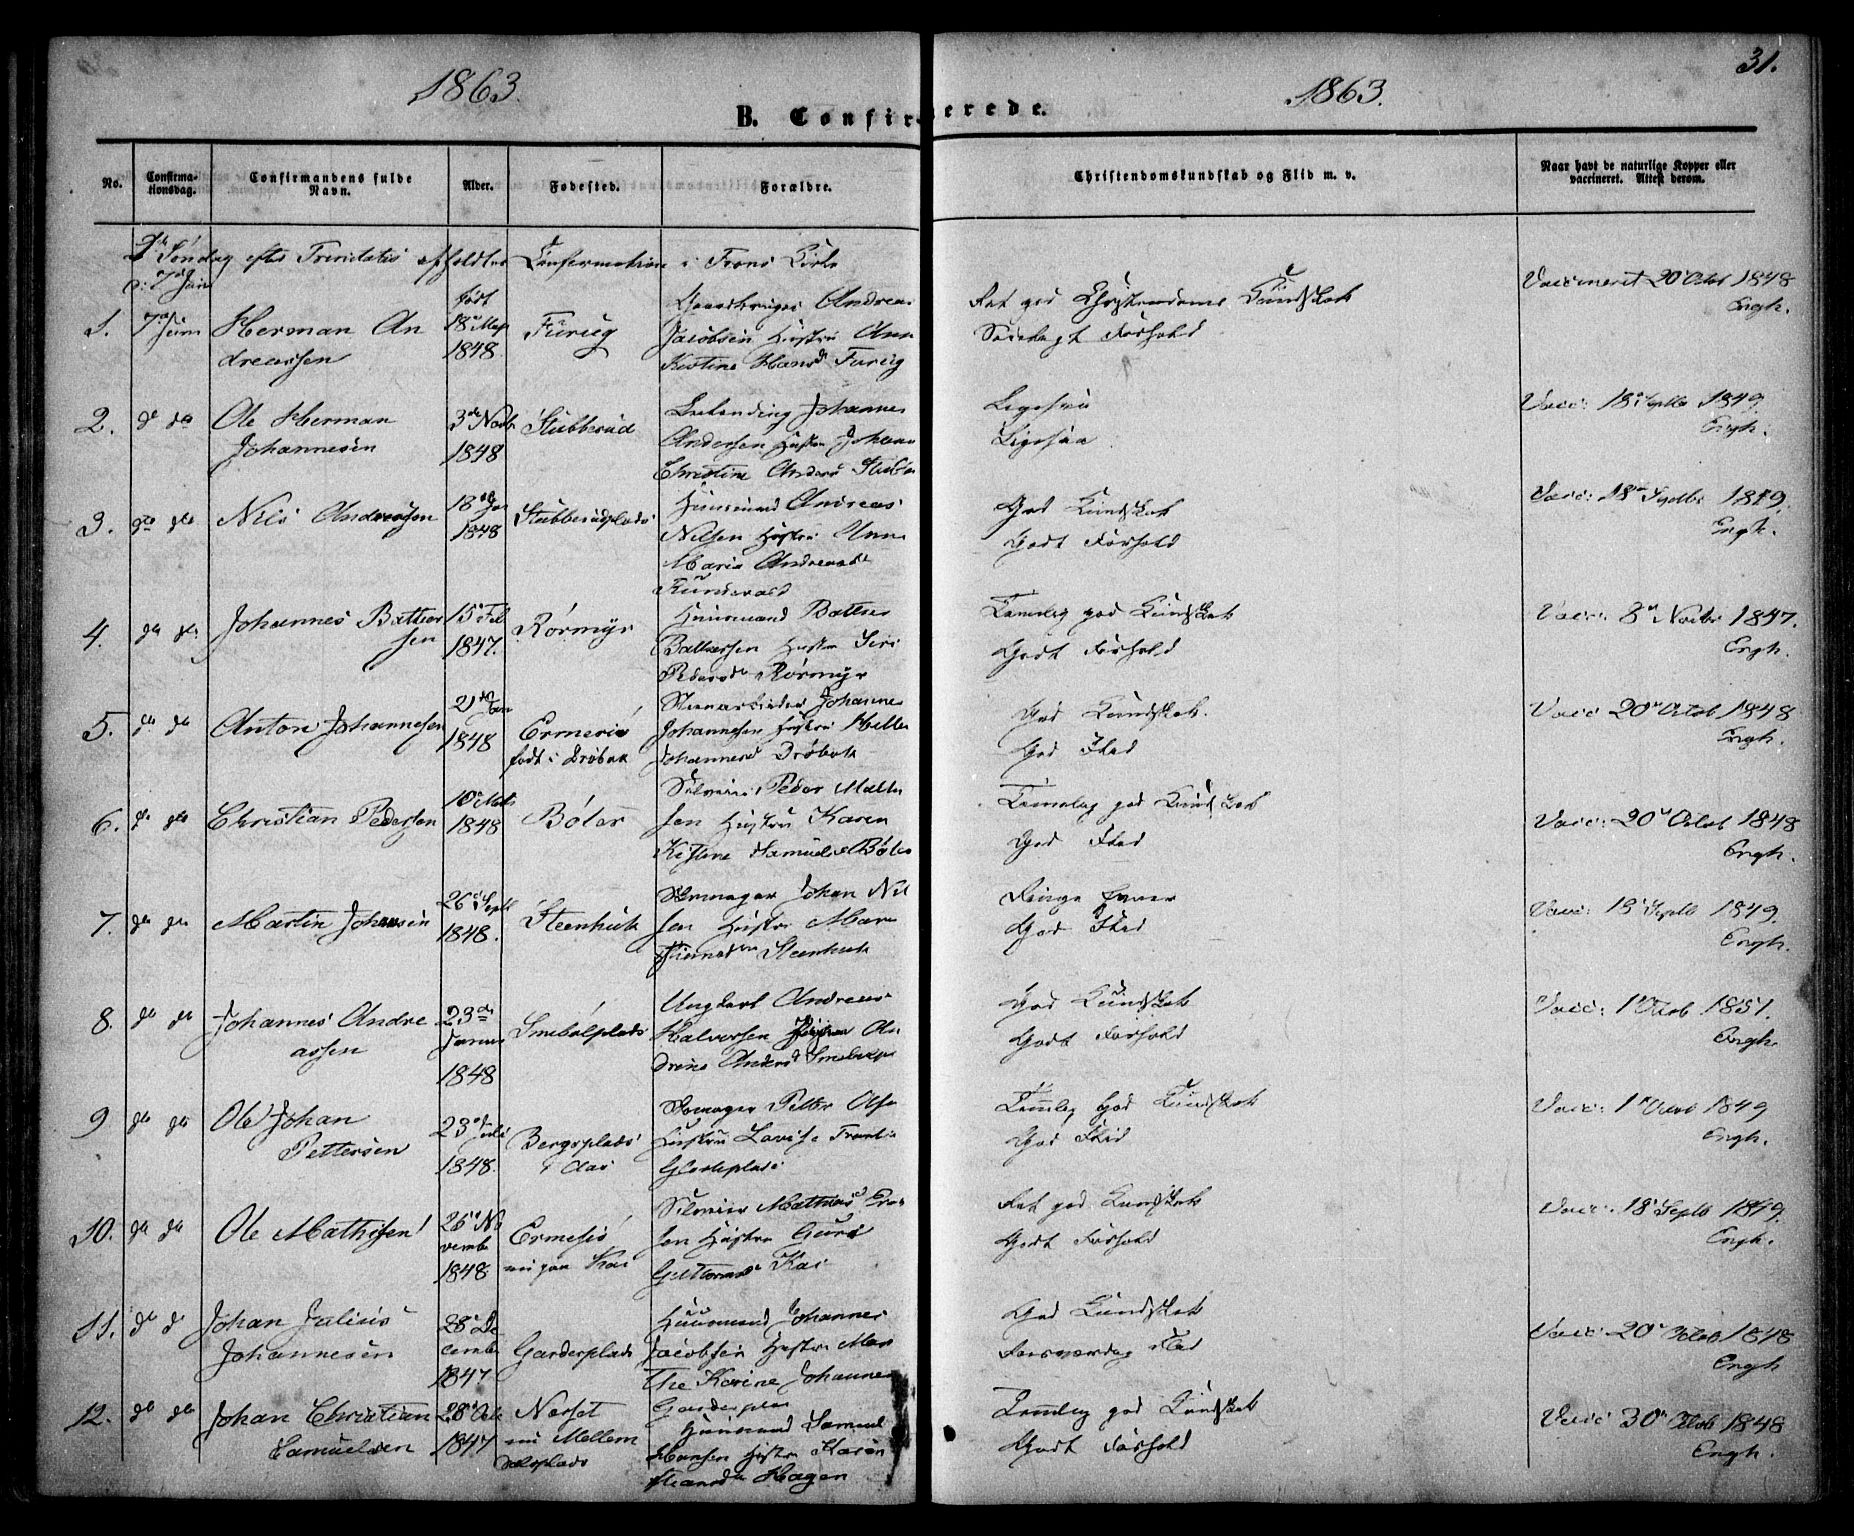 1863
1863.
31.
B. Confirmerede.
No.
Confirma-
tionsdag.
Confirmandens fulde
Navn.
Alder.
Fødested.
Forældre.
Christendomskundskab og Flid m. v.
Naar havt de naturlige Kopper eller
vaccineret. Attest derom.
Søndag efter Trinitatis afholdtes Confirmation i Frons Kirke
7de Juni
1. 7de Juni
Herman An
dreassen
født
18de Mai
1848.
Furug
Gaardbruger Andreas
Jacobsen Hustru Anne
Kistine Hansd. Furug
Ret god Christendoms Kundskab
Sædeligt Forhold
Vaccineret 20 Octob 1848
Engh.
2. do do
Ole Herman
Johannesen
3de Novb
1848
Stubberud
Inderst Johannes
Andersen Hustru Johanne
Christine Anders
Ligesaa
Ligesaa
Vacc: 18 Septb 1849.
Engh.
3. do do
Nils Andreassen
18de Jan
1848
Stubberudplads
Huusmand Andreas
Nilsen Hustru Anne
Maria Andreasd
God Kundskab
Godt Forhold
Vacc: 18 Septbr 1849.
Engh.
4. do do
Johannes Baltser
sen
15de Feb
1847.
Rørmyr
Huusmand Baltser
Baltsersen Hustru Siri
Pedersd Rørmyr
Temlig god Kundskab
Godt Forhold
Vacc: 8de Novbr 1847.
Engh.
5. do do
Anton Johannesen
21de Jan
1848
Ermesiø
født i Drøbak
Johannes
Johannesen Hustru Helle
Johannesd Drøbak
God Kundskab.
God Flid
Vacc 20 Octob 1848
Engh.
6. do do
Christian Pedersen
10de Mai
1848
Bøler
Selveier Peder Mathi
sen Hustru Karen
Kistine Samuelsd Bøler
Temlig god Kundskab
God Flid
Vacc: 20 Octob 1848
Engh.
7. do do
Martin Johansen
26de Septb
1848.
Steenhuk
Skomager Johan Nil
sen Hustru Maren
Steenhuk
Ringe Evner
God Flid
Vacc: 18 Septb 1849.
Engh.
8. do do
Johannes Andre
assen
23de
Januar
1848
Smebølplads
Ungkarl Andreas
Halvorsen
drine Andersd Smebølpl
God Kundskab
Godt Forhold
Vacc: 1 Octob 1851.
Engh.
9 do do
Ole Johan
Pettersen
23de Juli
1848.
Bergsplads
i Aas
Skomager Petter Olsen
Hustru Lovise
Temlig God Kundskab
God Flid
Vacc: 1 Octob 1849
Engh.
10. do do
Ole Mathisen
26de No
vemb
1848
Ermesiø
nu paa Kas
Selveier Mathias
sen Hustru Guro
Guttormsd Kas
Ret god Kundskab
Godt Forhold
Vacc: 18 Septb 1849.
Engh.
11. do do
Johan Julius
Johannesen
28de De
cemb
1847
Garderplads
Huusmand Johannes
Jacobsen Hustru Mar
the Karine Johannes
Garderplads
God Kundskab
Flid
Vacc: 20 Octob 1848
Engh
12. do do
Johan Christian
Samuelsen
28de Octb
1847
Næset
nu Mellem
Huusmand Samuel
Hansen Hustru Karen
Hansd Hagen
Temlig god Kundskab
Godt Forhold
Vacc: 30 Octob 1848
Engh.